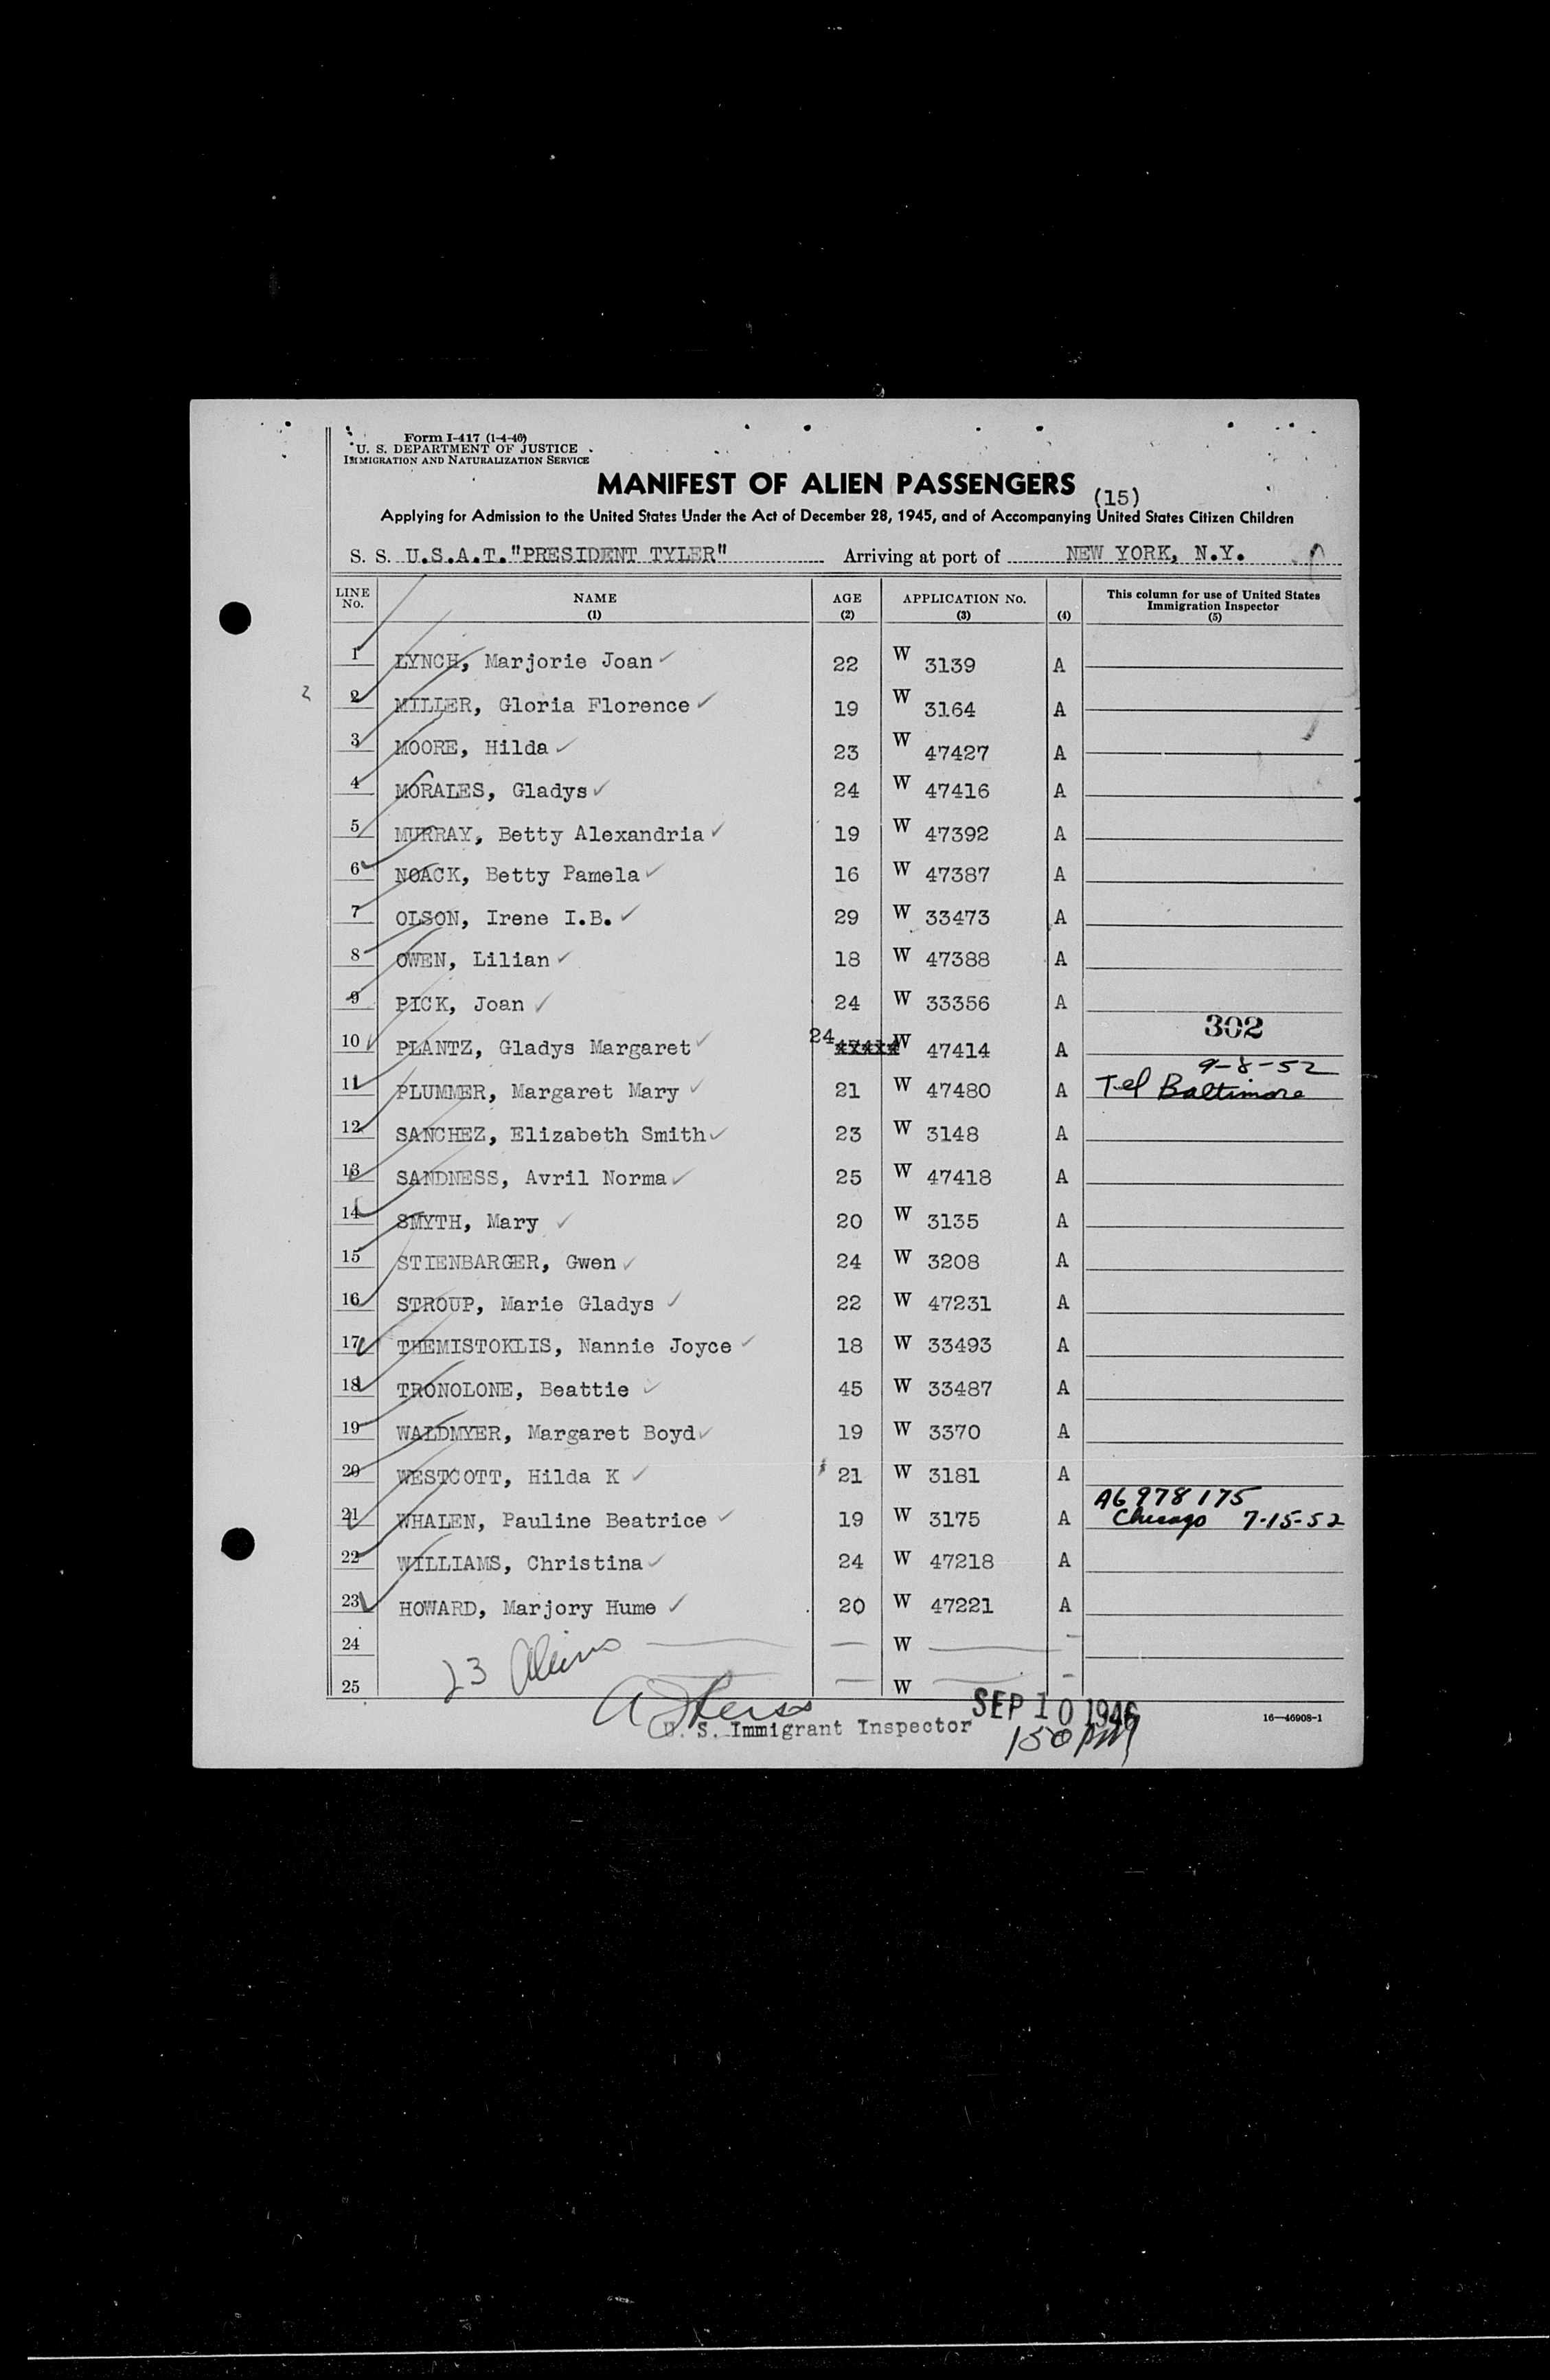 Form I-417 (1-4-46)
U. S. DEPARTMENT OF JUSTICE
IMMIGRATION AND NATURALIZATION SERVICE
MANIFEST OF ALIEN PASSENGERS
(15)
Applying for Admission to the United States Under the Act of December 28, 1945, and of Accompanying United States Citizen Children
S. S. U.S.A.T. "PRESIDENT TYLER" Arriving at port of NEW YORK, N.Y.
LINE No. NAME (1) AGE (2) APPLICATION No. (3) (4) This column for use of United States Immigration Inspector (5)
1 LYNCH, Marjorie Joan 22 W 3139 A
2 MILLER, Gloria Florence 19 W 3164 A
3 MOORE, Hilda 23 W 47427 A
4 MORALES, Gladys 24 W 47416 A
5 MURRAY, Betty Alexandria 19 W 47392 A
6 NOACK, Betty Pamela 16 W 47387 A
7 OLSON, Irene I.B. 29 W 33473 A
8 OWEN, Lilian 18 W 47388 A
9 PICK, Joan 24 W 33356 A
302
10 PLANTZ, Gladys Margaret 24 W 47414 A
9-8-52
11 PLUMMER, Margaret Mary 21 W 47480 A Tel Baltimore
12 SANCHEZ, Elizabeth Smith 23 W 3148 A
13 SANDNESS, Avril Norma 25 W 47418 A
14 SMYTH, Mary 20 W 3135 A
15 STIENBARGER, Gwen 24 W 3208 A
16 STROUP, Marie Gladys 22 W 47231 A
17 THEMISTOKLIS, Nannie Joyce 18 W 33493 A
18 TRONOLONE, Beattie 45 W 33487 A
19 WALDMYER, Margaret Boyd 19 W 3370 A
20 WESTCOTT, Hilda K 21 W 3181 A
A6 978 175
21 WHALEN, Pauline Beatrice 19 W 3175 A Chicago 7-15-52
22 WILLIAMS, Christina 24 W 47218 A
23 HOWARD, Marjory Hume 20 W 47221 A
24 W
23 Aliens
25 W
SEP 10 1946
U. S. Immigrant Inspector
150 PM
16—46908-1